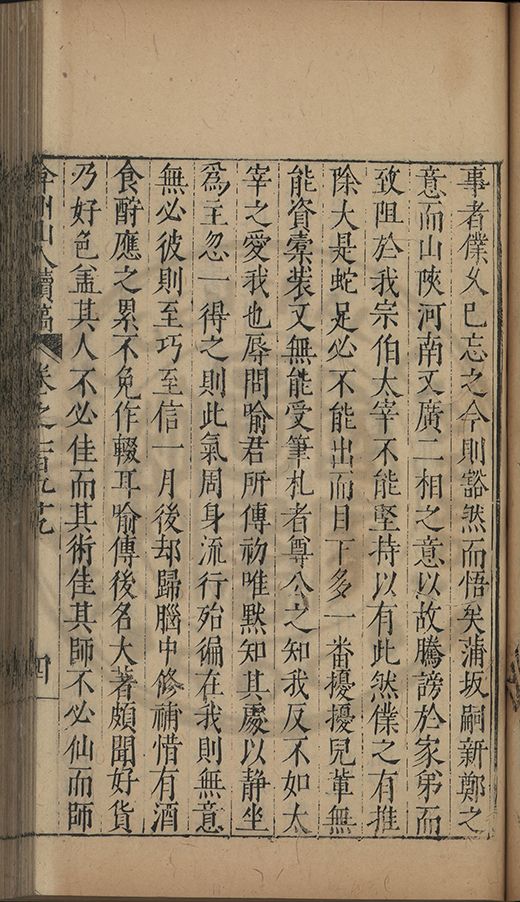 事者僕久已忘之今則豁然而悟矣蒲坂嗣新鄭之
意而山陜河南又廣二相之意以故騰謗於家弟而
致阻於我宗伯太宰不能堅持以有此然僕之有推
除大是蛇足必不能出而目下多一番擾擾兒軰無
能資橐裝又無能受筆札者尊公之知我反不如太
宰之愛我也辱問喻君所傳初唯黙知其處以静坐
爲主忽一得之則此氣周身流行殆徧在我則無意
無必彼則至巧至信一月後却歸腦中修補惜有酒
食酧應之累不免作輟耳喻傳後名大著頗聞好貨
乃好色盖其人不必佳而其術佳其師不必仙而師
弇州山人續稿 卷之一百九十九 四